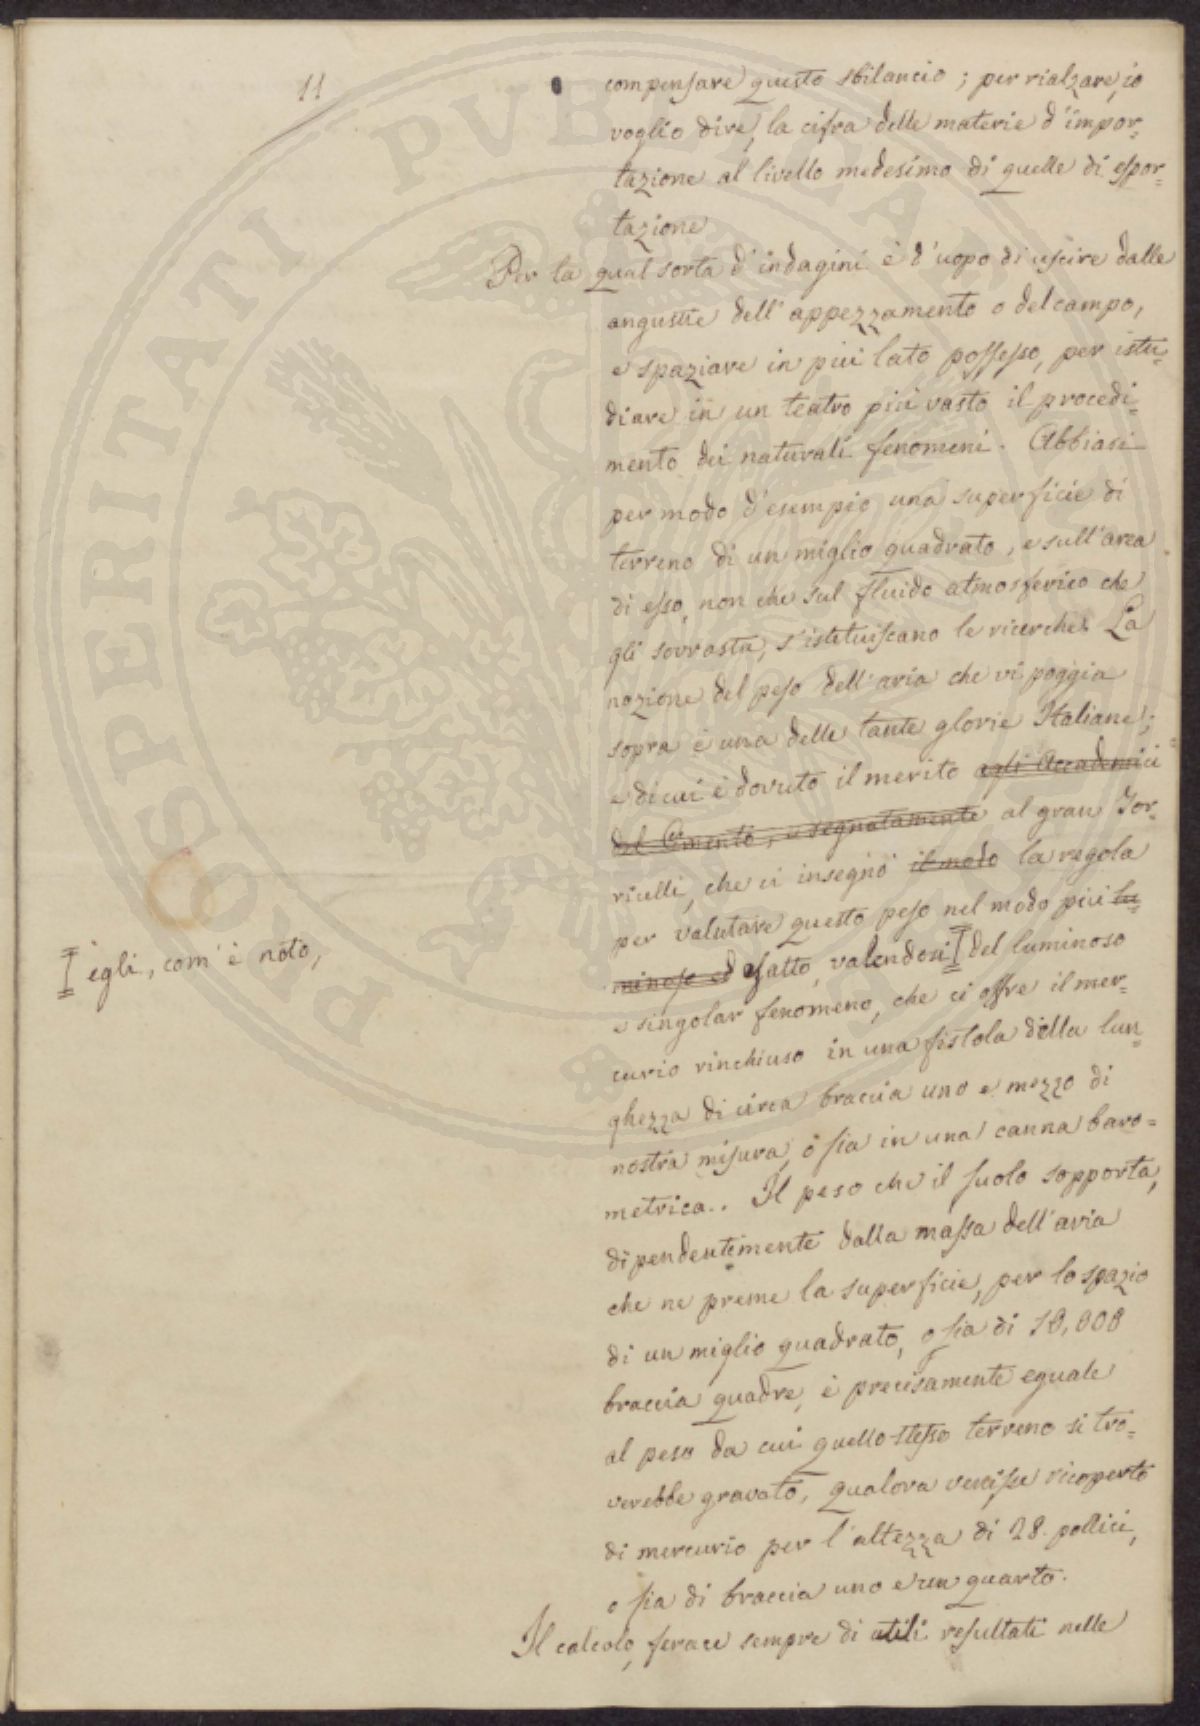 11
compensare questo sbilancio; per rialzare, io
voglio dire, la cifra delle materie d'impor=
tazione al livello medesimo di quelle di espor=
tazione
Per la qual sorta d'indagini è d'uopo di uscire dalle
angustie dell'appezzamento o del campo,
e spaziare in più lato possesso, per istu=
diare in un teatro più vasto il procedi=
mento dei naturali fenomeni. Abbiasi
per modo d'esempio una superficie di
terreno di un miglio quadrato, e sull'area
di esso, non che sul fluido atmosferico che
gli sovrasta, s'istituiscano le ricerche. La
nozione del peso dell'aria che vi poggia
sopra è una delle tante glorie Italiane;
e di cui è dovuto il merito agli Accademici
del Cimento, e segnatamente al gran Tor=
ricelli, che ci insegnò il modo la regola
per valutare questo peso nel modo più lu=
minoso ed esatto, valendosi del luminoso
egli, com'è noto,
e singolar fenomeno, che ci offre il mer=
curio rinchiuso in una fistola della lun=
ghezza di circa braccia uno e mezzo di
nostra misura, o sia in una canna baro=
metrica.. Il peso che il suolo sopporta,
dipendentemente dalla massa dell'aria
che ne preme la superficie, per lo spazio
di un miglio quadrato, o sia di
braccia quadre, è precisamente eguale
al peso da cui quello stesso terreno si tro=
verebbe gravato, qualora venisse ricoperto
di mercurio per l'altezza di 28. pollici,
o sia di braccia uno e un quarto.
Il calcolo, ferace sempre di utili resultati nelle
PROSPERITATI PUBLICAE